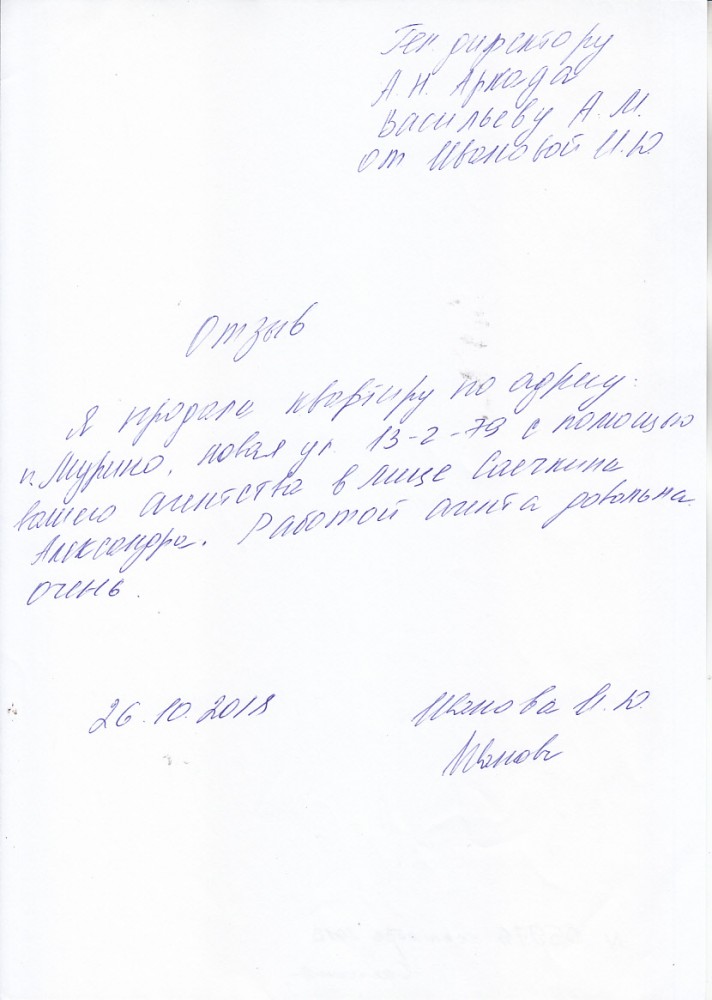 Ген. директору
А.Н. Аркада
Васильеву А.М.
от Ивановой И.Ю.
Отзыв
Я продала квартиру по адресу:
п. Мурино, новая ул 13-2-79 с помощью
вашего агентства в лице Саечкина
Александра. Работой агента довольна
очень.
26.10.2018 Иванова И.Ю.
Иванов